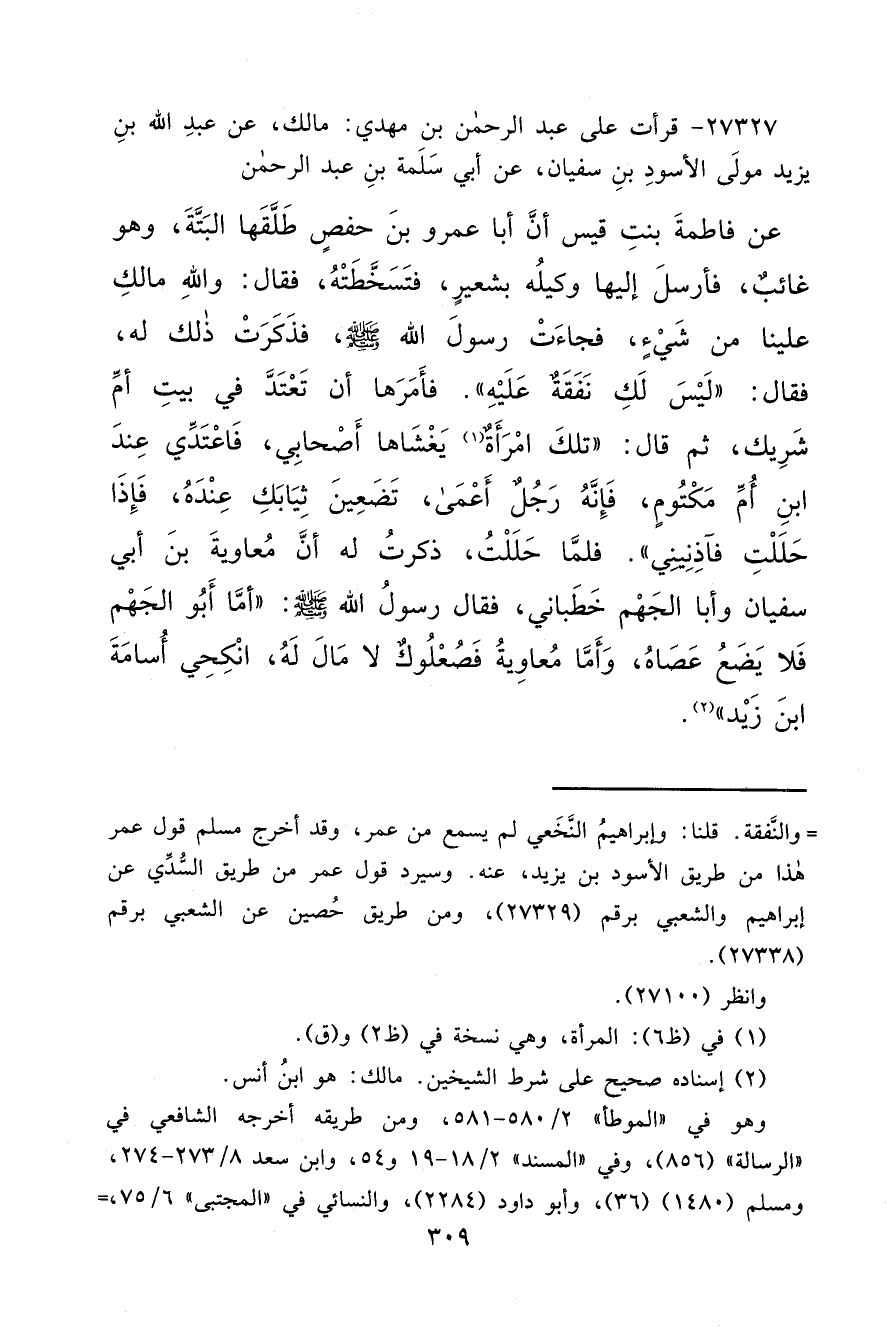 ٢٧٣٢٧- قرأت على عبد الرحمٰن بن مهدي: مالك، عن عبدِ الله بنِ
يزيد مولَى الأسودِ بنِ سفيان، عن أبي سَلَمة بنِ عبد الرحمٰن
عن فاطمةَ بنتِ قيس أنَّ أبا عمرو بنَ حفصٍ طَلَّقَها البَتَّةَ، وهو
غائبٌ، فأرسلَ إليها وكيلُه بشعيرٍ، فتَسَخَّطَتْهُ، فقال: واللهِ مالكِ
علينا من شَيْءٍ، فجاءَتْ رسولَ الله ﷺ، فذَكَرَتْ ذٰلك له،
فقال: «لَيْسَ لَكِ نَفَقَةٌ عَلَيْهِ». فأَمَرَها أن تَعْتَدَّ في بيتِ أمِّ
شَرِيك، ثم قال: «تلكَ امْرَأَةٌ(١) يَغْشَاها أَصْحابِي، فَاعْتَدِّي عِندَ
ابنِ أُمِّ مَكْتُومٍ، فَإِنَّهُ رَجُلٌ أَعْمَىٰ، تَضَعِينَ ثِيَابَكِ عِنْدَهُ، فَإِذَا
حَلَلْتِ فآذِنِينِي». فلمَّا حَلَلْتُ، ذكرتُ له أنَّ مُعاويةَ بنَ أبي
سفيان وأبا الجَهْم خَطَباني، فقال رسولُ الله ﷺ: «أمَّا أَبُو الجَهْم
فَلا يَضَعُ عَصَاهُ، وَأَمَّا مُعاوِيةُ فَصُعْلُوكٌ لا مَالَ لَهُ، انْكِحِي أُسامَةَ
ابنَ زَيْد»(٢).
= والنَّفقة. قلنا: وإبراهيمُ النَّخَعي لم يسمع من عمر، وقد أخرج مسلم قول عمر
هٰذا من طريق الأسود بن يزيد، عنه. وسيرد قول عمر من طريق السُّدِّي عن
إبراهيم والشعبي برقم (٢٧٣٢٩)، ومن طريق حُصين عن الشعبي برقم
(٢٧٣٣٨).
وانظر (٢٧١٠٠).
(١) في (ظ٦): المرأة، وهي نسخة في (ظ٢) و(ق).
(٢) إسناده صحيح على شرط الشيخين. مالك: هو ابنُ أنس.
وهو في «الموطأ» ٢/ ٥٨٠-٥٨١، ومن طريقه أخرجه الشافعي في
«الرسالة» (٨٥٦)، وفي «المسند» ٢/ ١٨-١٩ و٥٤، وابن سعد ٨/ ٢٧٣-٢٧٤،
ومسلم (١٤٨٠) (٣٦)، وأبو داود (٢٢٨٤)، والنسائي في «المجتبى» ٦/ ٧٥،=
٣٠٩